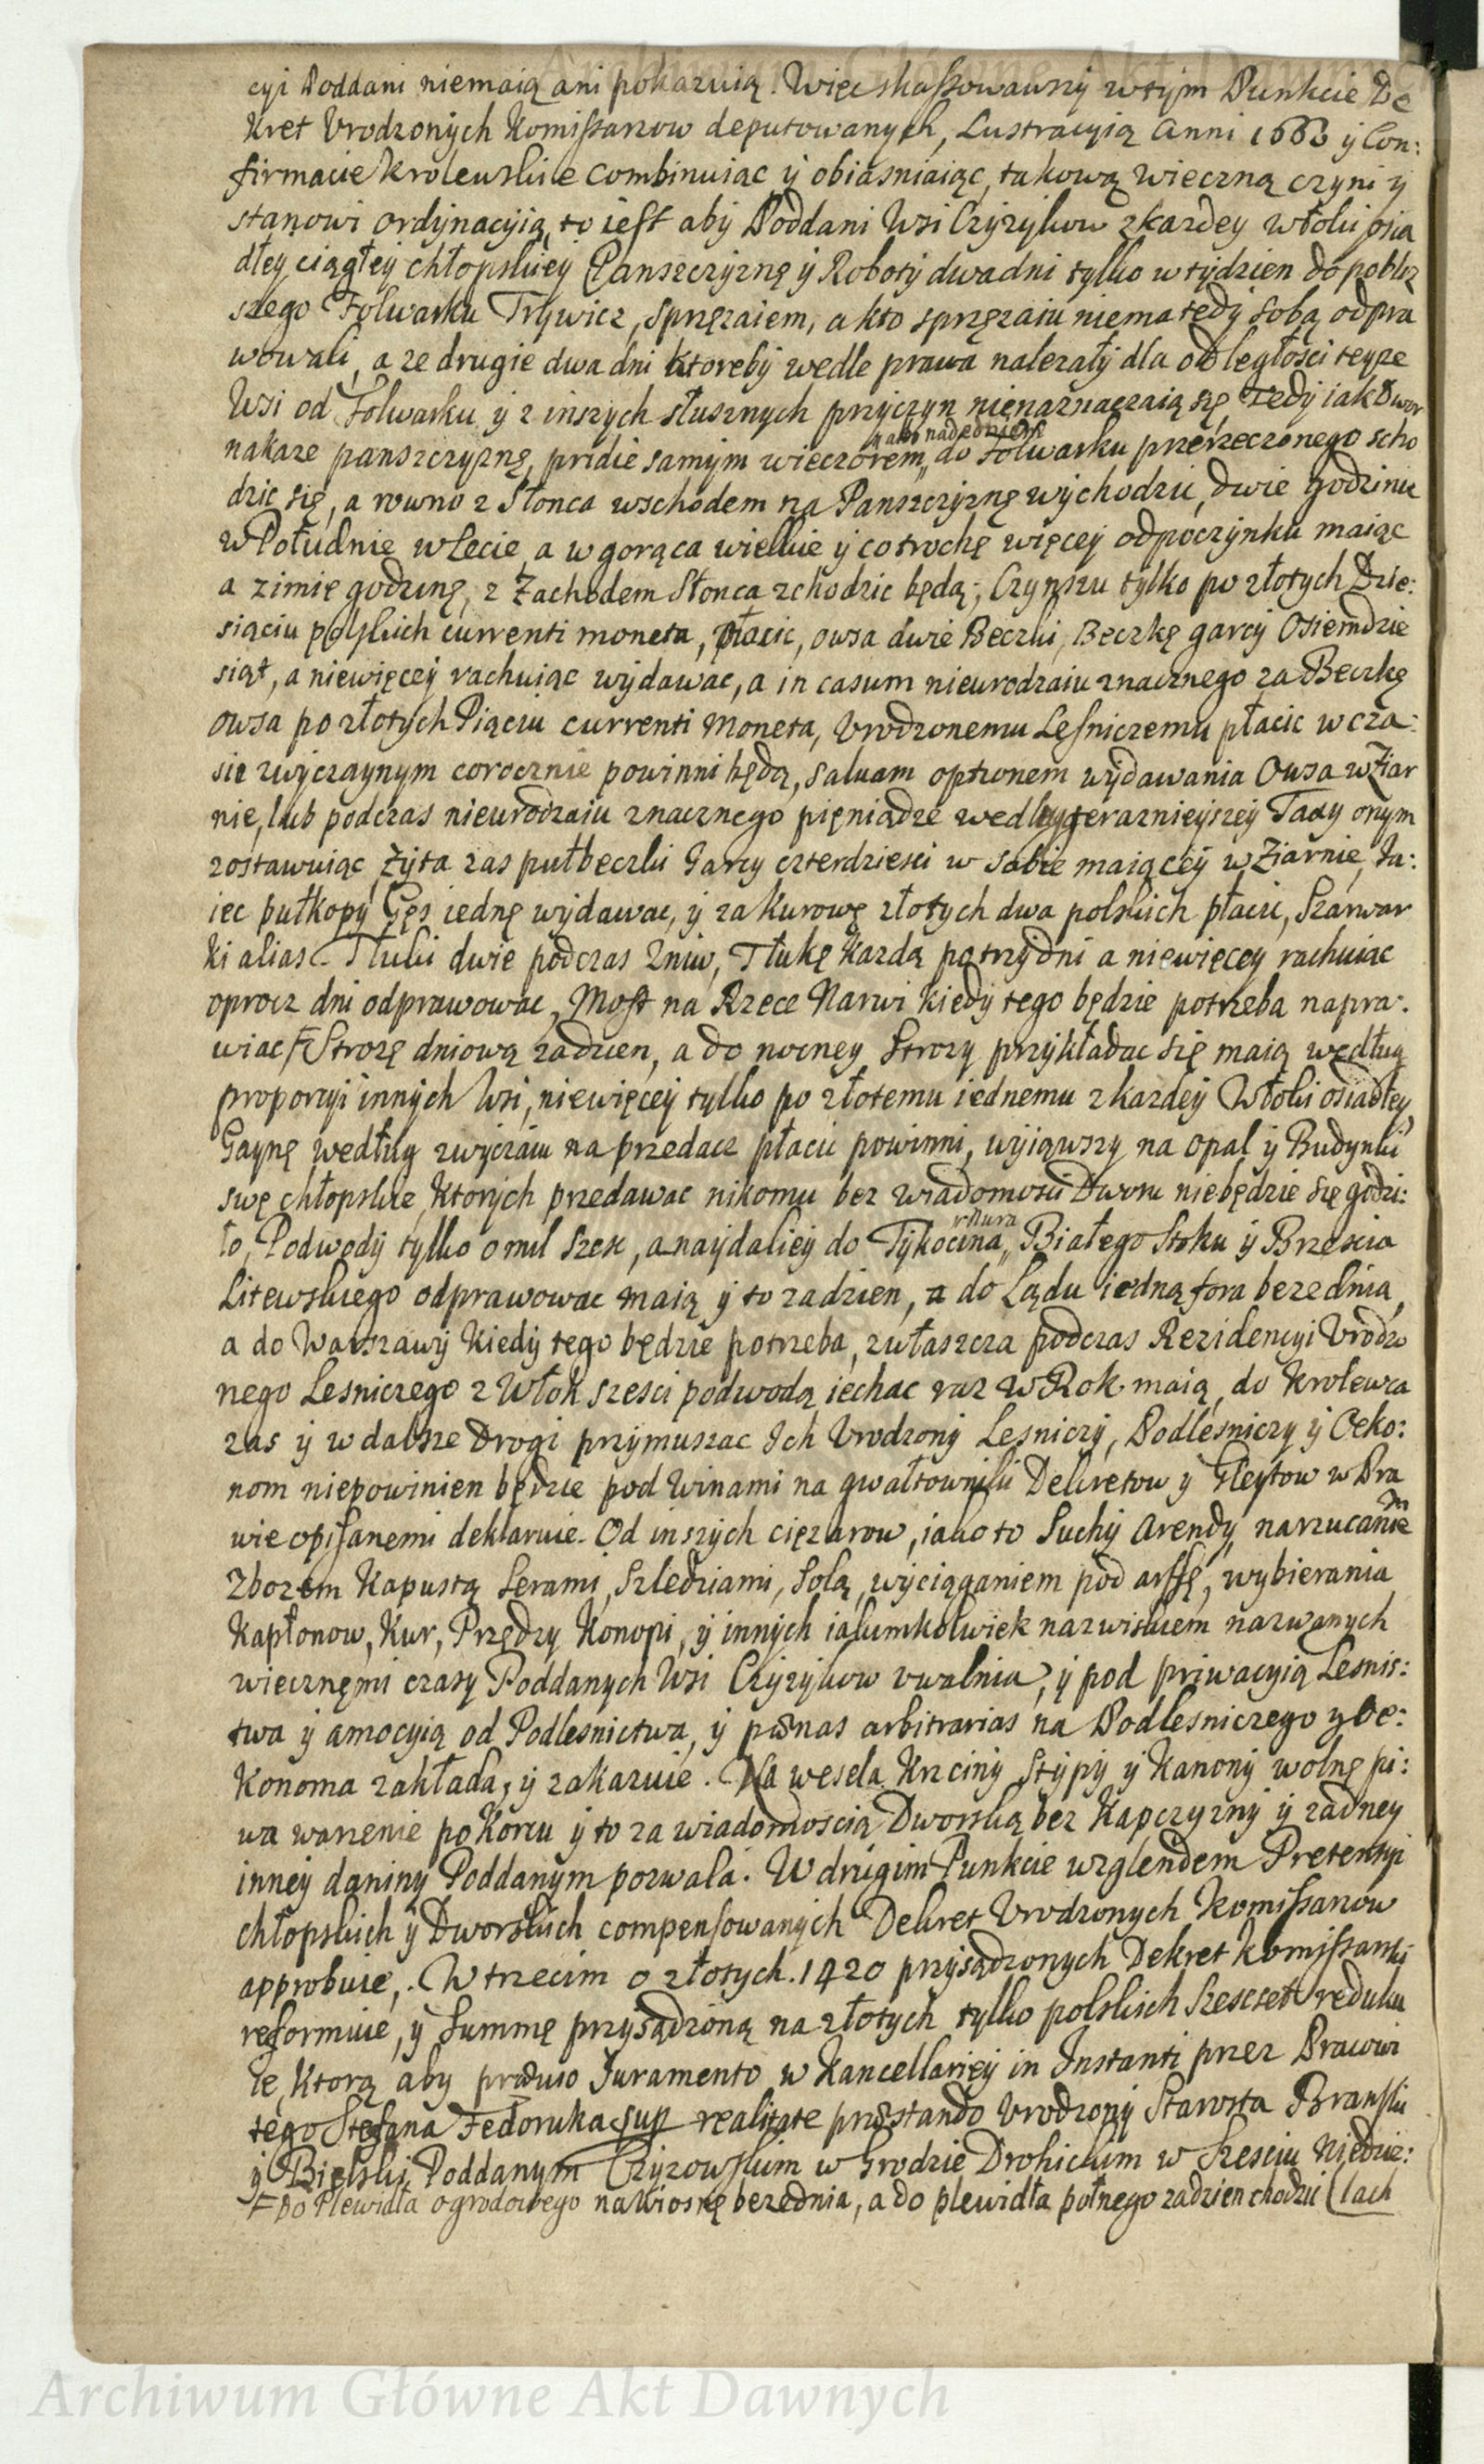 Archiwum Główne Akt Dawnych
cyi Poddani niemaią ani pokazuią. Więc skassowawszy wtym Punkcie De
kret Vrodzonych Komissarzow deputowanych, Lustracyią Anni 1663 y Con:
firmacie krolewskie combinuiąc y obiasniaiąc, takową wieczną czyni y
stanowi ordynacyią, to iest aby Poddani Wsi Czyzykow zkazdey włoki osia
dłey ciągłey chłopskiey Panszczyznę y Roboty dwa dni tylko w tydzien do poblisz
szego Folwarku Trywicz, sprzęzaiem, a kto sprzęzaiu niema tedy sobą odpra
wowali, a ze drugie dwa dni ktoreby wedle prawa nalezały dla odległości teyze
Wsi od Folwarku y z inszych słusznych przyczyn nienaznaczaią się, Tedy iak Dwor
nakaze panszczyznę, pridie samym wieczorem, do folwarku przerzeczonego scho
y abo nadedniem
dzic się, a rowno z Słonca wschodem na Panszczyznę wychodzic, dwie godzinie
w Południe w Lecie, a w gorąca wielkie y co trochę więcey odpoczynku maiąc
a zimie godzinę, z Zachodem Słonca zchodzic będą; Czynszu tylko po złotych Dzie:
siąciu polskich currenti moneta, płacic, owsa dwie Beczki, Beczkę garcy Osiemdzie
siąt, a niewięcey rachuiąc wydawac, a in casum nieurodzaiu znacznego za Beczkę
owsa po złotych Piąciu currenti Moneta, Vrodzonemu Leśniczemu płacic w cza:
sie zwyczaynym corocznie powinni będą, saluam optionem wydawania Owsa w Ziar
nie, lub podczas nieurodzaiu znacznego pieniądze według teraznieyszey Taxy onym
zostawuiąc, Zyta zas pułbeczki Garcy czterdziesci w sobie maiącey w Ziarnie, Ja:
iec pułkopy Gęs iednę wydawac, y za kurowę złotych dwa polskich płacic, Szarwar
ki alias Tłuki dwie podczas Zniw, Tłukę kazdą po trzy dni a niewięcey rachuiąc
oprocz dni odprawowac, Most na Rzece Narwi kiedy tego będzie potrzeba napra:
wiac F Strozę dniową zadzien, a do nocney Strozy przykładac się maią według
proporcyi innych Wsi, niewięcey tylko po złotemu iednemu zkazdey Włoki osiadłey
Gaynę według zwyczaiu na przedacz płacic powinni, wyiąwszy na opal y Budynki
swe chłopskie, ktorych przedawac nikomu bez wiadomosci Dworu niebędzie się godzi:
ło, Podwody tylko o mil szesc, a naydaliey do Tykocina, Białego Stoku y Brzescia
Litewskiego odprawowac maią y to zadzien, a do Lądu iedną fora bezednia,
a do Warszawy kiedy tego będzie potrzeba, zwłaszcza podczas Rezidencyi Vrodzo
nego Lesniczego z Włok szesci podwodą iechac raz w Rok maią, do Krolewca
zas y w dalsze Drogi przymuszac Ich Vrodzony Lesniczy, Podlesniczy y Oeko:
nom niepowinien będzie pod Winami na gwałtowniki Dekretow y Gleytow w Pra
wie opisanemi deklaruie. Od inszych cięzarow, iako to Suchy Arendy, narzucania
Zbozem Kapustą Serami, Szledziami, Solą, wyciąganiem pod arffę, wybierania
Kapłonow, Kur, Przędzy Konopi, y innych iakimkolwiek nazwiskiem nazwanych
wiecznęmi czasy Poddanych Wsi Czyzykow vwalnia, y pod priwacyią Lesnic:
twa y amocyią od Podlesnictwa, y pœnas arbitrarias na Podlesniczego y Oe:
konoma zakłada, y zakazuie. Na wesela Krzciny Stypy y Kanony wolnę pi:
wa warzenie po Korcu y to za wiadomoscią Dworską bez Kapczyzny y zadney
inney daniny Poddanym pozwala. W drugim Punkcie wzglendem Pretensyi
chłopskich y Dworskich compensowanych Dekret Vrodzonych Komissarzow
approbuie. W trzecim o złotych. 1420 przysądzonych Dekret Komissarski
reformuie, y Summę przysądzoną na złotych tylko polskich Szescset reduku
ie, ktorą aby præuio Juramento w Kancellaryey in Instanti przez Pracowi
tego Stefana Fedoruka sup realitate præstando Vrodzony Starosta Branski
y Bielski, Poddanym Czyzowskim w Grodzie Drohickim w Szesciu Niedzie:
F Do Plewidła ogrodowego na Wiosnę bezednia, a do plewidła polnego zadzien chodzic (lach
Archiwum Główne Akt Dawnych